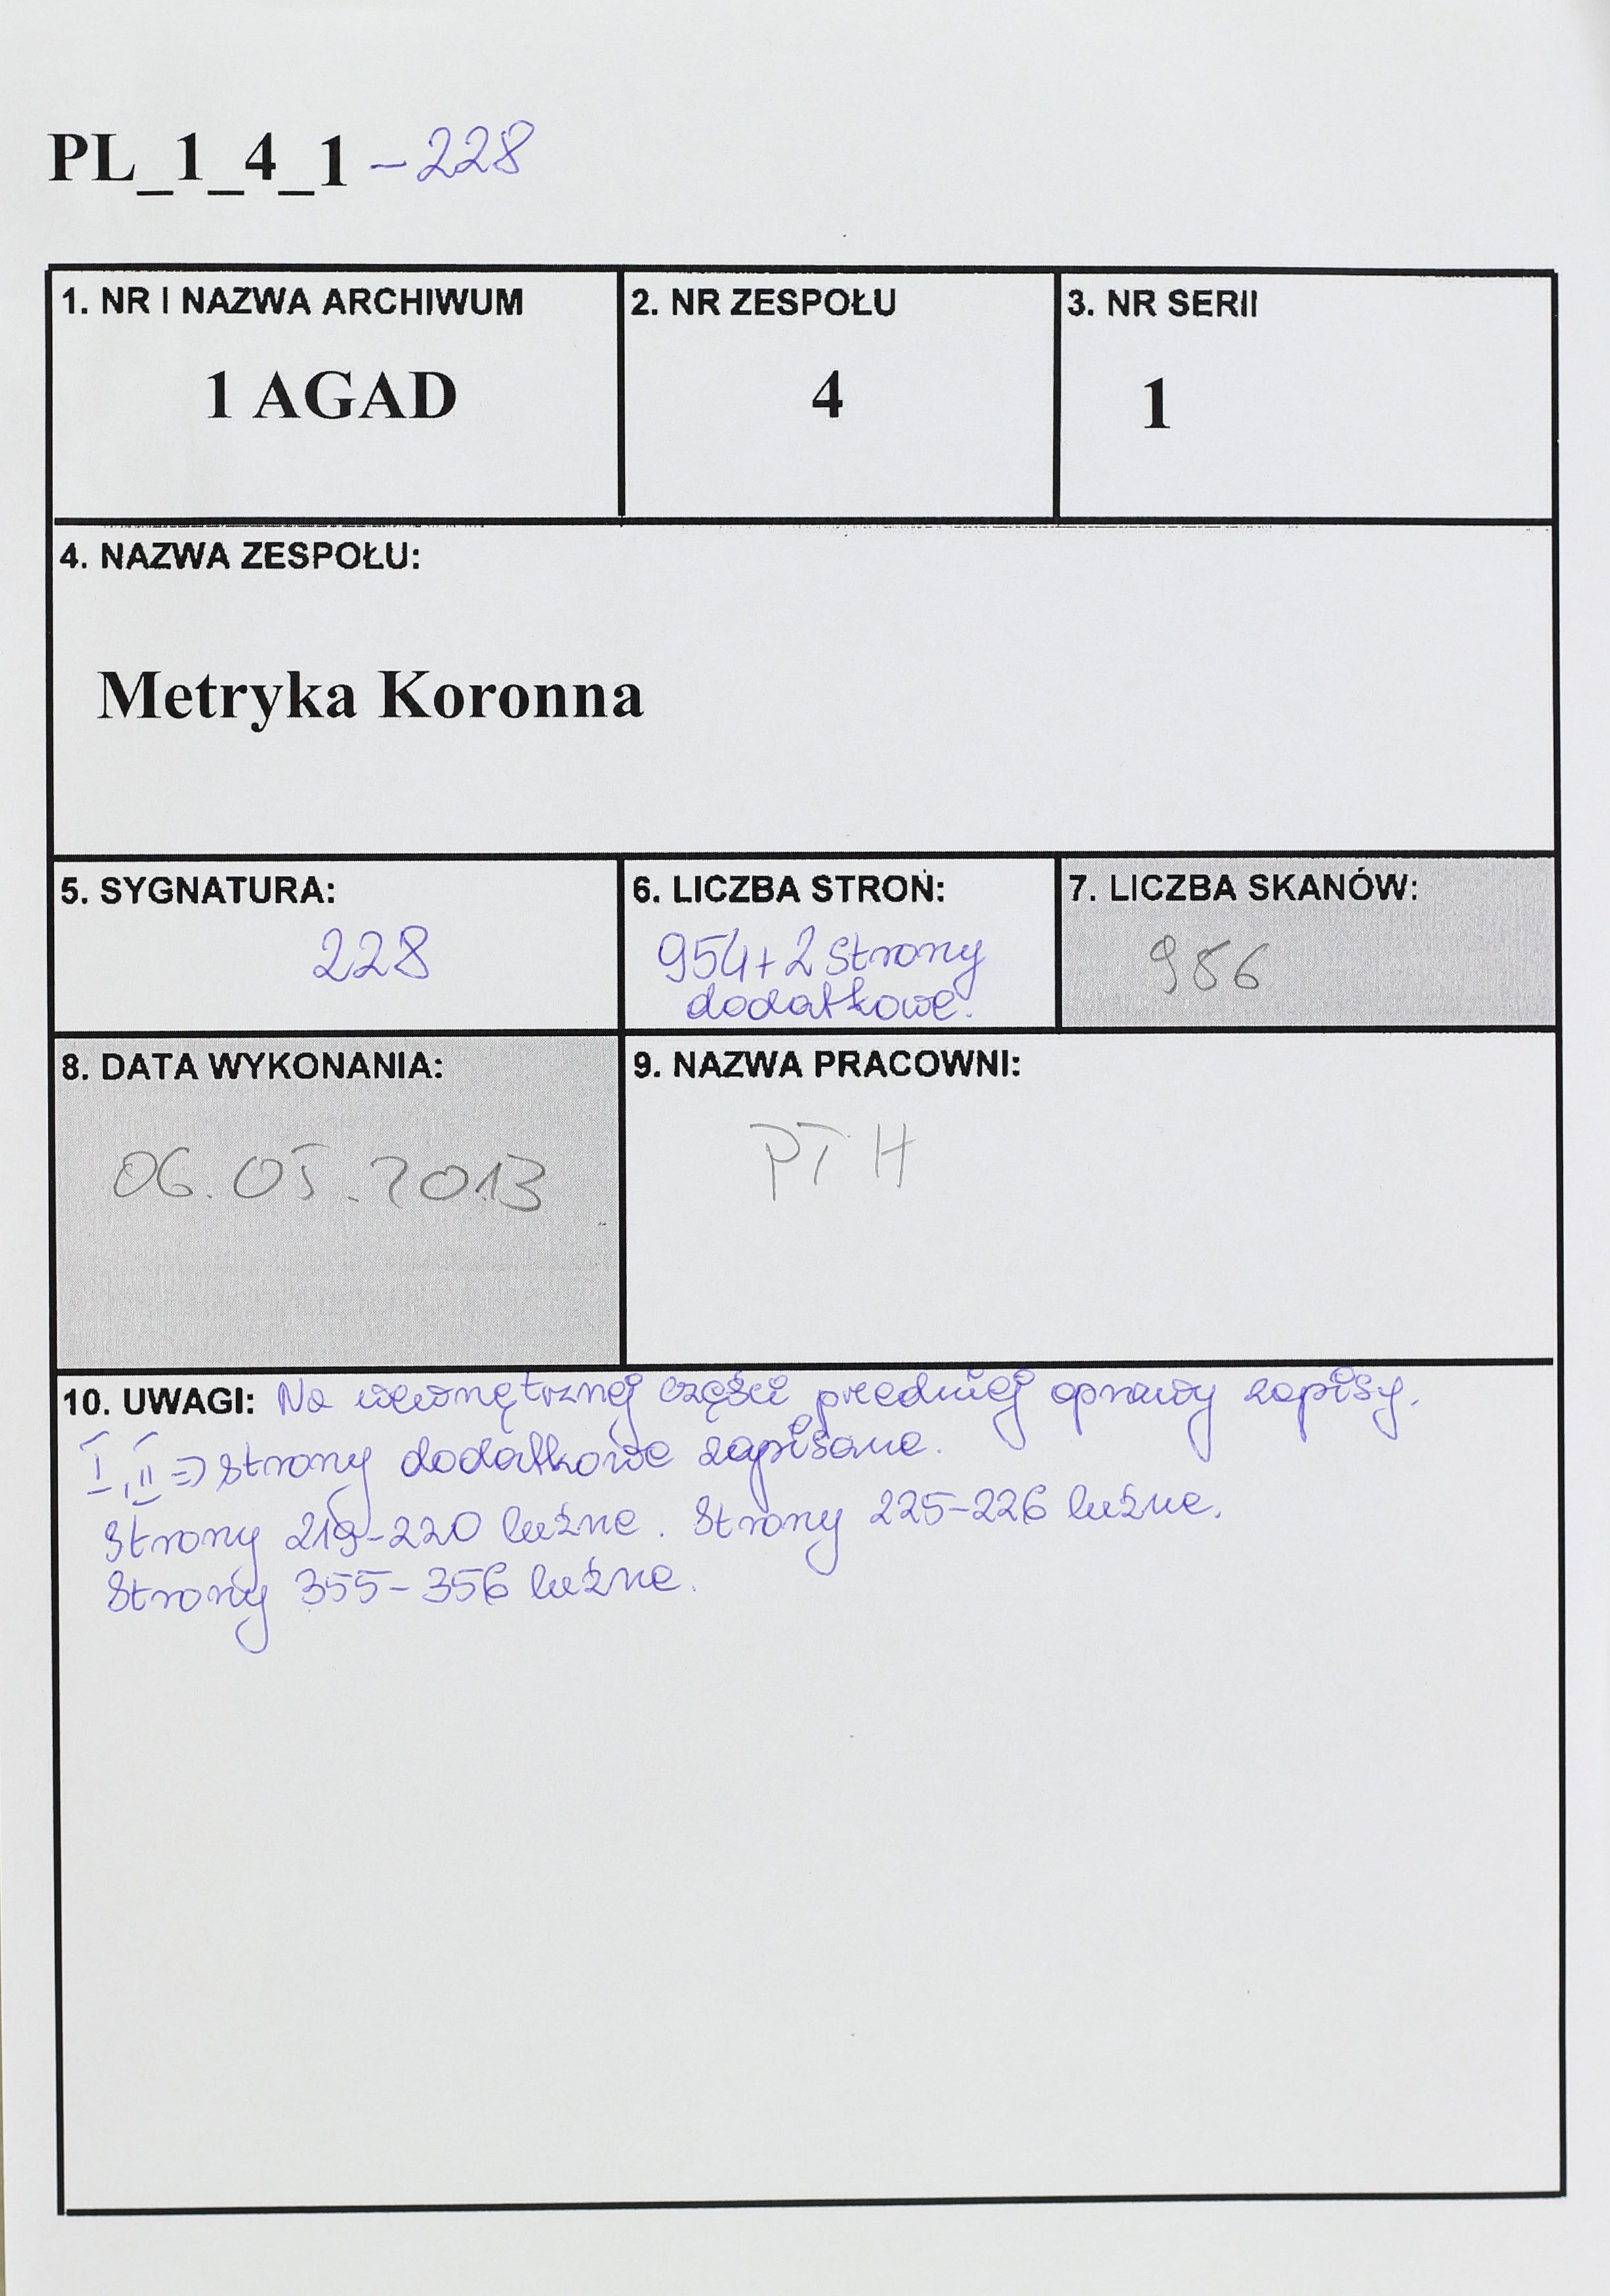 PL_1_4_1 – 228
1. NR I NAZWA ARCHIWUM
1 AGAD
2. NR ZESPOŁU
4
3. NR SERII
1
4. NAZWA ZESPOŁU:
Metryka Koronna
5. SYGNATURA:
228
6. LICZBA STRON:
954+2 strony
dodatkowe.
7. LICZBA SKANÓW:
8. DATA WYKONANIA:
06.05.2013
9. NAZWA PRACOWNI:
PTH
10. UWAGI: Na wewnętrznej części przedniej oprawy zapisy.
I, II => strony dodatkowe zapisane.
Strony 219-220 luźne. Strony 225-226 luźne.
Strony 355-356 luźne.